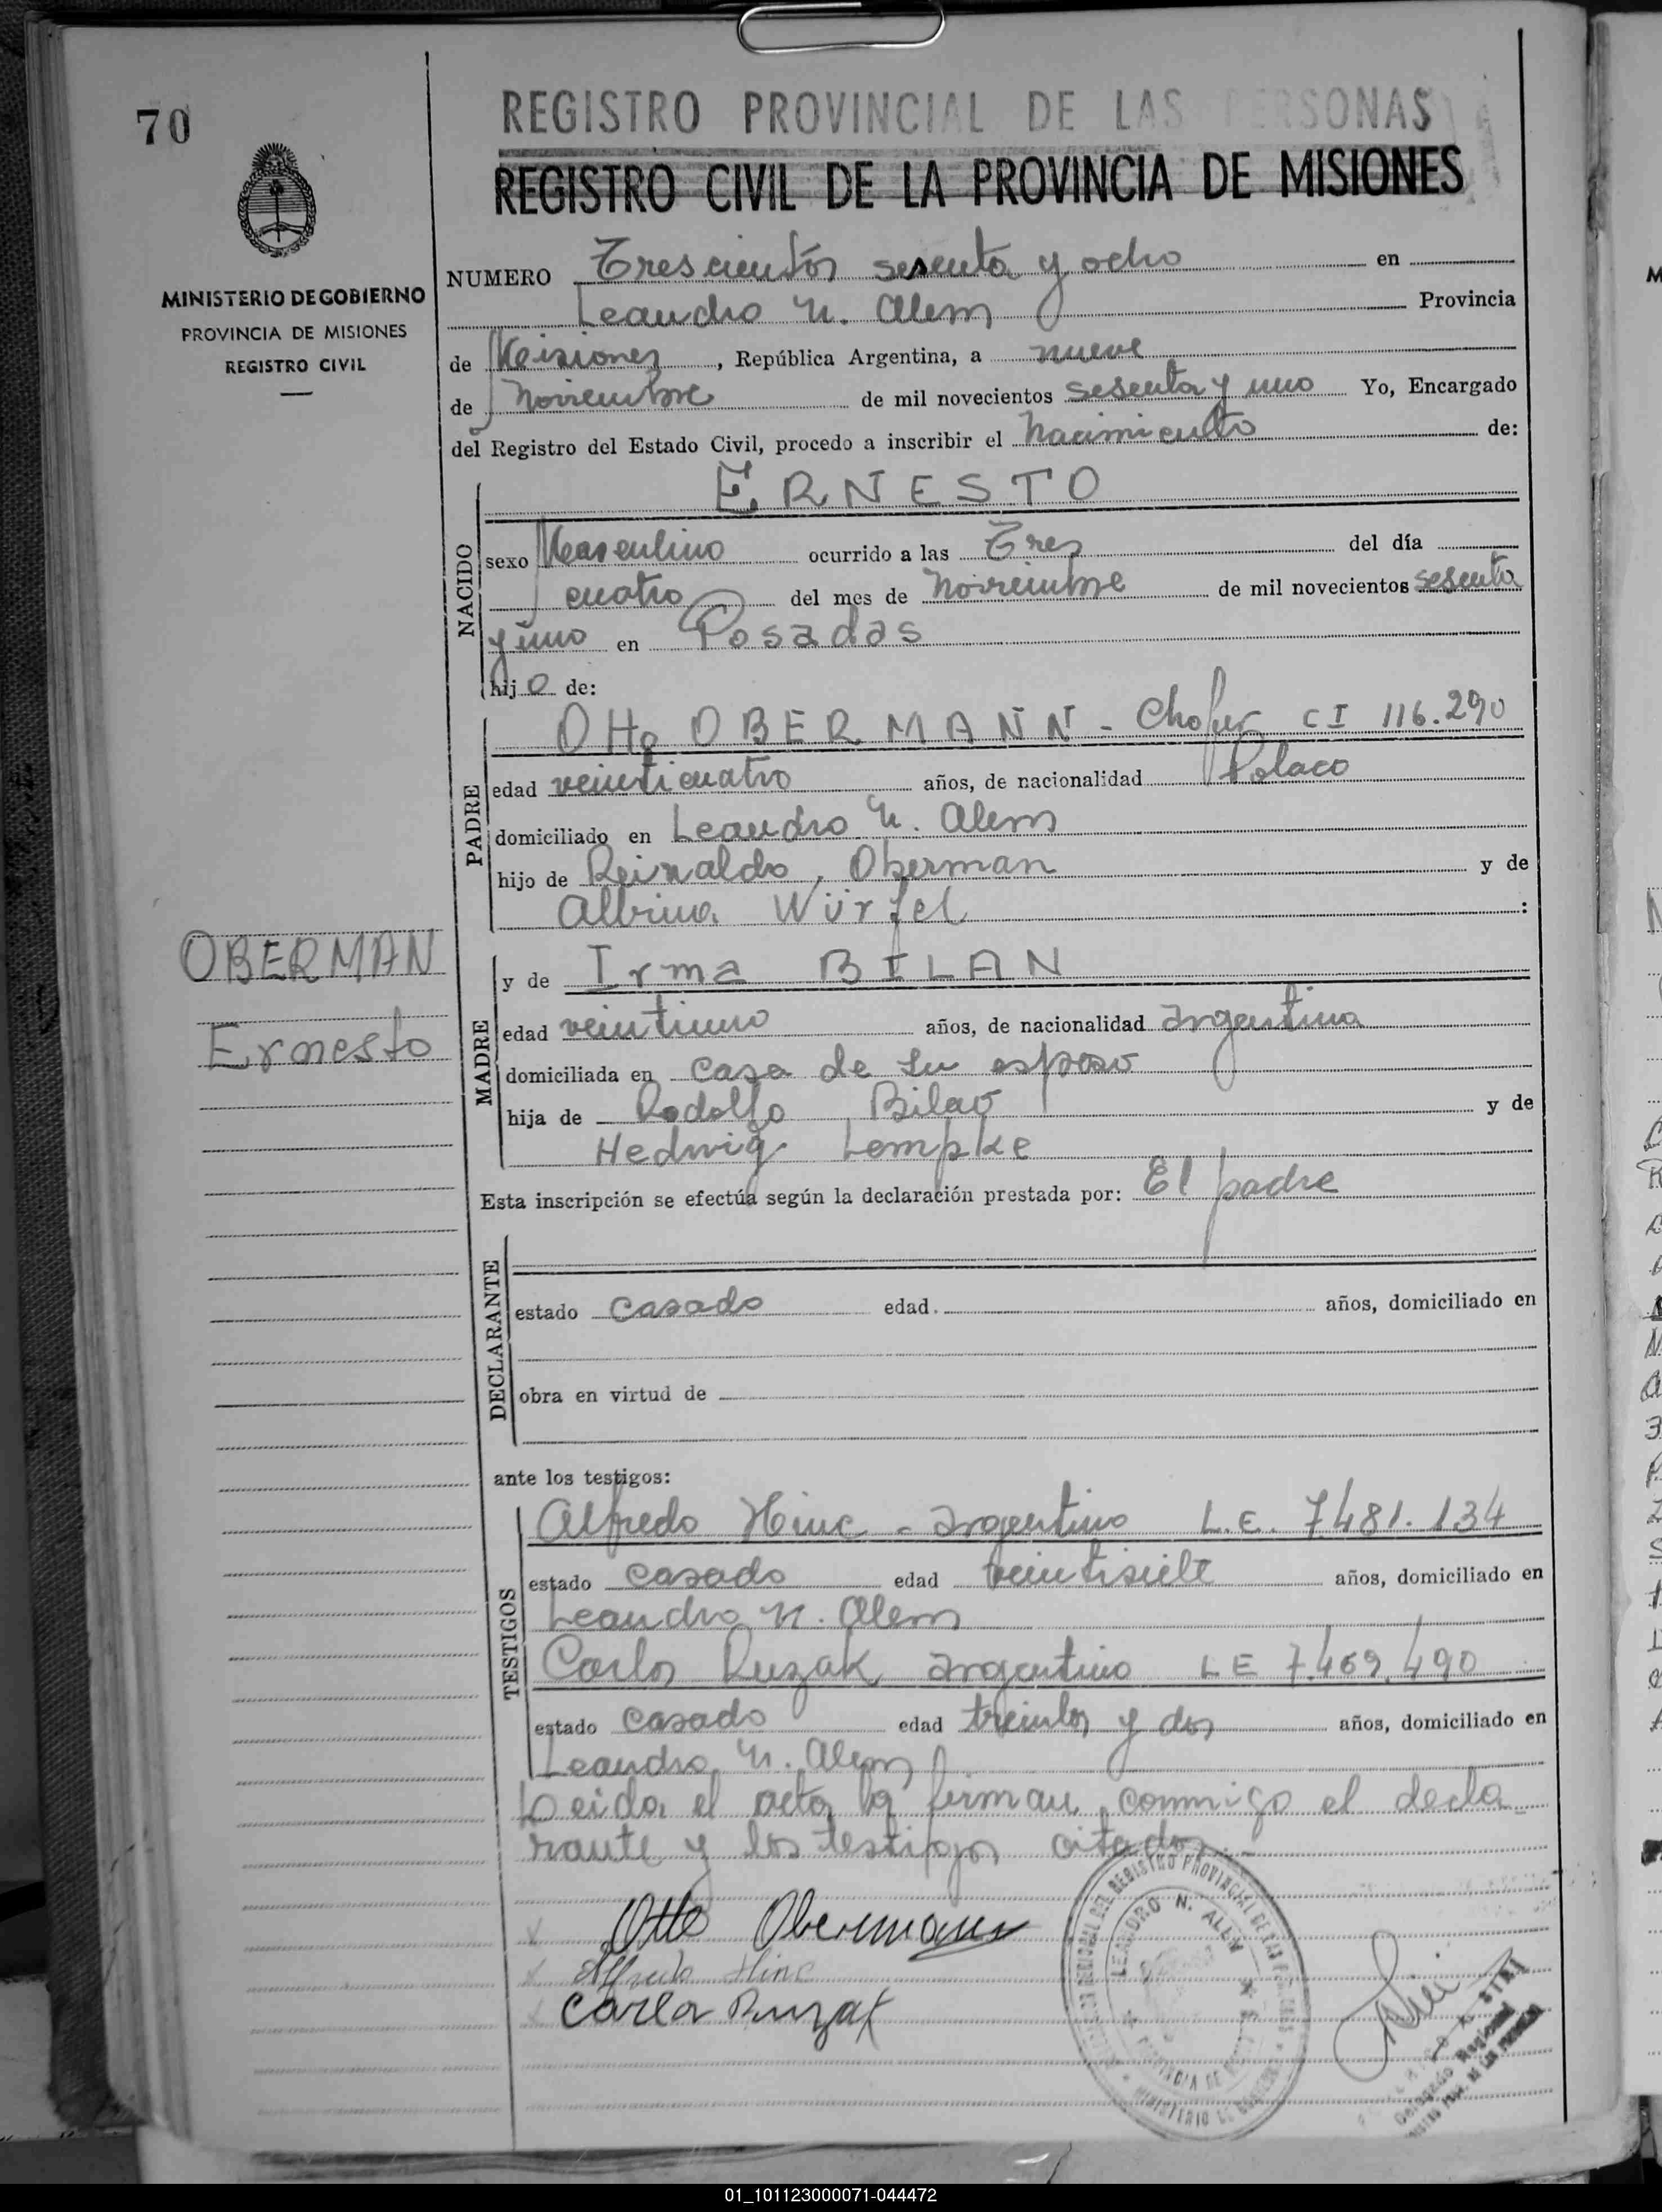 70
REGISTRO PROVINCIAL DE LAS PERSONAS
REGISTRO CIVIL DE LA PROVINCIA DE MISIONES
MINISTERIO DE GOBIERNO
PROVINCIA DE MISIONES
REGISTRO CIVIL
NUMERO Trescientos sesenta y ocho en
Leandro N. Alem Provincia
de Misiones, República Argentina, a nueve
de Noviembre de mil novecientos sesenta y uno Yo, Encargado
del Registro del Estado Civil, procedo a inscribir el Nacimiento de:
NACIDO
ERNESTO
sexo Masculino ocurrido a las Tres del día
cuatro del mes de Noviembre de mil novecientos sesenta
y uno en Posadas
hijo de:
PADRE
Otto OBERMANN - Chofer CI 116.290
edad veinticuatro años, de nacionalidad Polaco
domiciliado en Leandro N. Alem
hijo de Reinaldo Oberman y de
Albina Würfel :
OBERMAN
Ernesto
MADRE
y de Irma BILAN
edad veintiuno años, de nacionalidad argentina
domiciliada en casa de su esposo
hija de Rodolfo Bilao y de
Hedwig Lempke
Esta inscripción se efectúa según la declaración prestada por: El padre
DECLARANTE
estado casado edad. años, domiciliado en
obra en virtud de
ante los testigos:
TESTIGOS
Alfredo Hinc - argentino L.E. 7.481.134
estado casado edad veintisiete años, domiciliado en
Leandro N. Alem
Carlos Ruzak argentino LE 7.469.490
estado casado edad treinta y dos años, domiciliado en
Leandro N. Alem
Leida el acta la firman conmigo el decla-
rante y los testigos citados -
Otto Obermann
Alfredo Hinc
Carlos Ruzak
LEANDRO N. ALEM
Delegado Regional
01_101123000071-044472